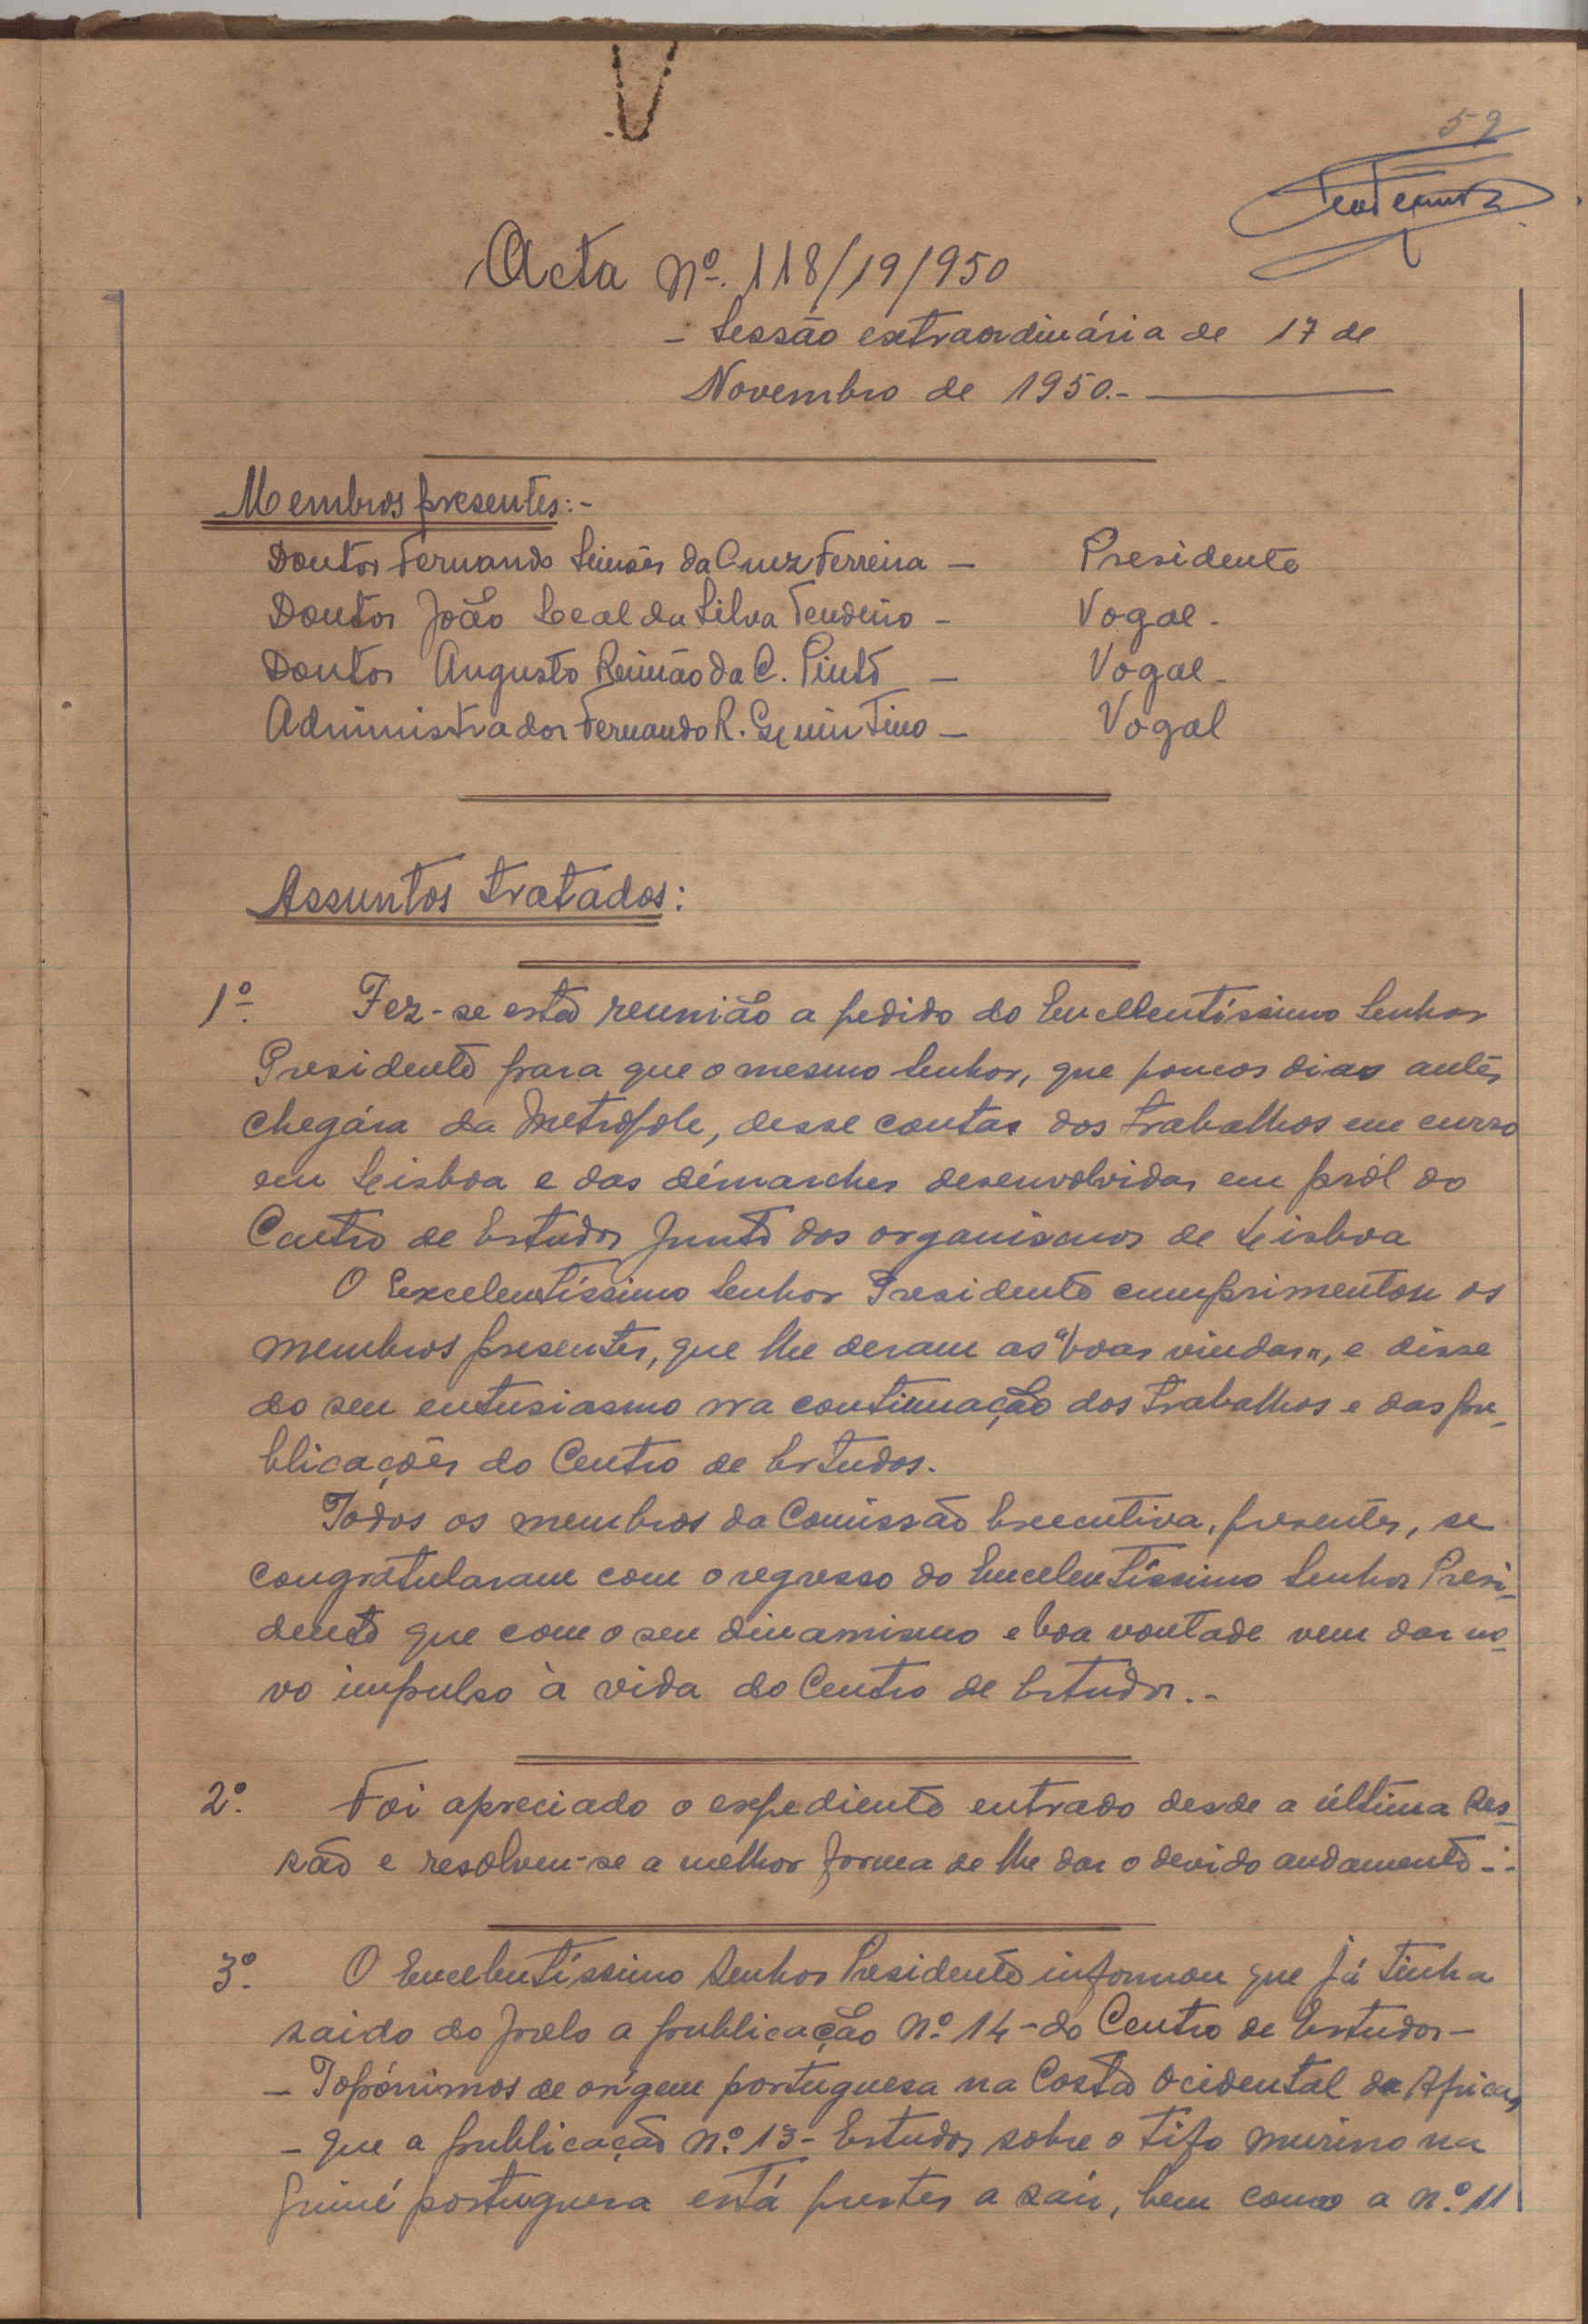 59
Acta Nº. 118/19/950
- Sessão extraordinária de 17 de
Novembro de 1950.-
Membros presentes:-
Doutor Fernando Simões da Cruz Ferreira - Presidente
Doutor João Leal da Silva Tendeiro - Vogal -
Doutor Augusto Reimão da C. Pinto - Vogal -
Administrador Fernando R. - Vogal
Assuntos tratados:
1º. Fez-se esta reunião a pedido do Excellentíssimo Senhor
Presidente para que o mesmo Senhor, que poucos dias antes
chegára da Metrópole, desse contas dos trabalhos em curso
em Lisboa e das démarches desenvolvidas em pról do
Centro de Estudos junto dos organismos de Lisboa
O Excelentíssimo Senhor Presidente cumprimentou os
membros presentes, que lhe deram as "boas vindas", e disse
do seu entusiasmo na continuação dos trabalhos e das pu-
blicações do Centro de Estudos.
Todos os membros da Comissão Executiva, presentes, se
congratularam com o regresso do Excelentíssimo Senhor Presi-
dente que com o seu dinamismo e boa vontade vem dar no-
vo impulso à vida do Centro de Estudos.-
2º. Foi apreciado o expediente entrado desde a última ses-
são e resolveu-se a melhor forma de lhe dar o devido andamento.-
3º. O Excelentíssimo Senhor Presidente informou que já tinha
saido do prelo a publicação Nº. 14 - do Centro de Estudos -
- Topónimos de origem portuguesa na Costa Ocidental de Africa,
- que a publicação Nº. 13 - Estudos sobre o tifo murino na
Guiné portuguesa está prestes a sair, bem como a nº. 11